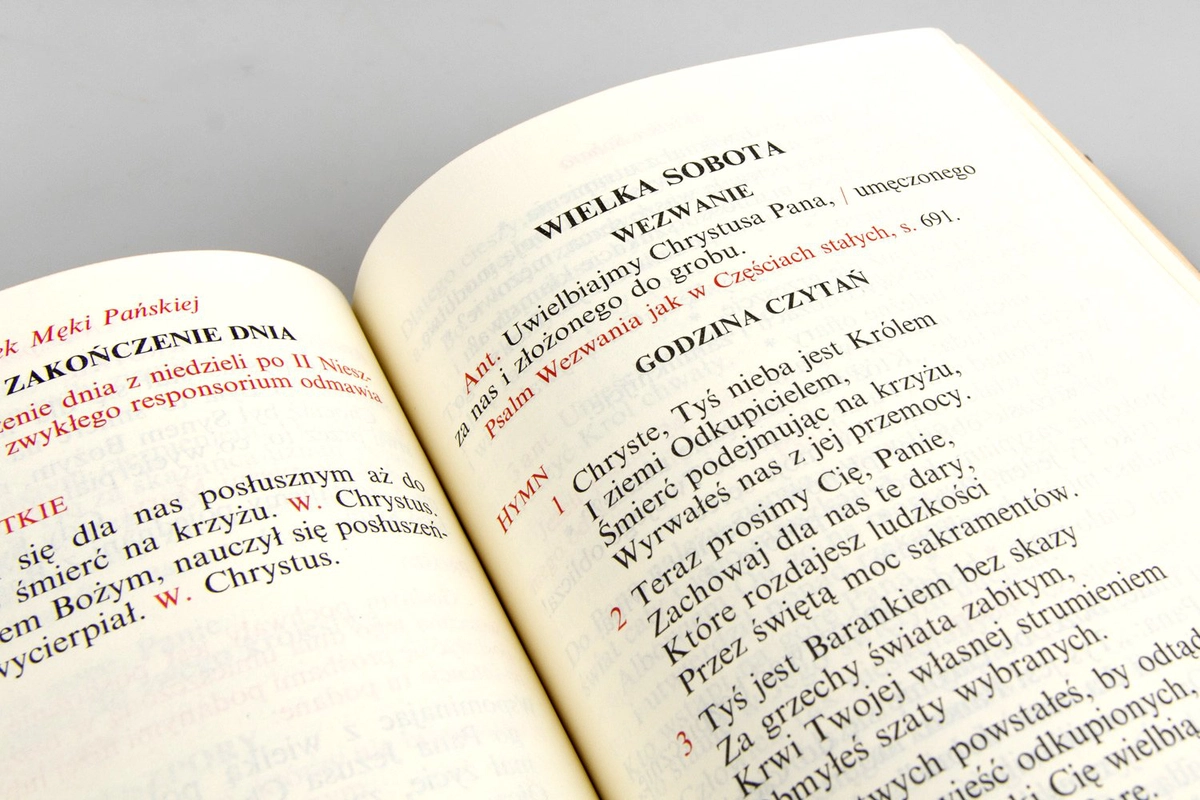 ek Męki Pańskiej
ZAKOŃCZENIE DNIA
zenie dnia z niedzieli po II Niesz-
zwykłego responsorium odmawia
TKIE
się dla nas posłusznym aż do
śmierć na krzyżu. W. Chrystus.
em Bożym, nauczył się posłuszeń-
wycierpiał. W. Chrystus.
WIELKA SOBOTA
WEZWANIE
Ant. Uwielbiajmy Chrystusa Pana, | umęczonego
za nas i złożonego do grobu.
Psalm Wezwania jak w Częściach stałych, s. 691.
GODZINA CZYTAŃ
HYMN
1 Chryste, Tyś nieba jest Królem
I ziemi Odkupicielem,
Śmierć podejmując na krzyżu,
Wyrwałeś nas z jej przemocy.
2 Teraz prosimy Cię, Panie,
Zachowaj dla nas te dary,
Które rozdajesz ludzkości
Przez świętą moc sakramentów.
3 Tyś jest Barankiem bez skazy
Za grzechy świata zabitym,
Krwi Twojej własnej strumieniem
Obmyłeś szaty wybranych.
twych powstałeś, by odtąd
wieść odkupionych,
ki Cię wielbią